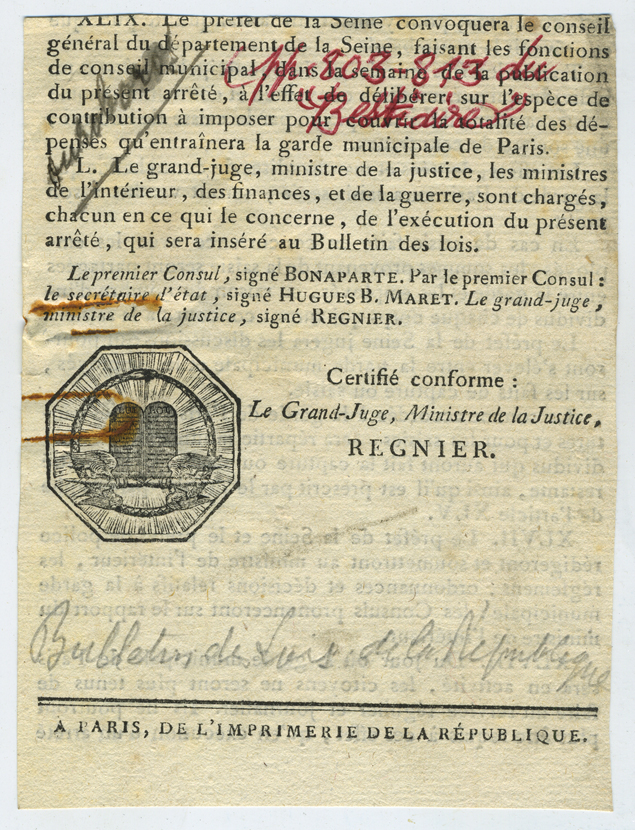 XLIX. Le préfet de la Seine convoquera le conseil
général du département de la Seine, faisant les fonctions
de conseil municipal, dans la semaine de la publication
du présent arrêté, à l'effet de délibérer sur l'espèce de
contribution à imposer pour couvrir la totalité des dé-
penses qu'entraînera la garde municipale de Paris.
L. Le grand-juge, ministre de la justice, les ministres
de l'intérieur, des finances, et de la guerre, sont chargés,
chacun en ce qui le concerne, de l'exécution du présent
arrêté, qui sera inséré au Bulletin des lois.
Le premier Consul, signé BONAPARTE. Par le premier Consul :
le secrétaire d'état, signé HUGUES B. MARET. Le grand-juge,
ministre de la justice, signé REGNIER.
pp. 803-813 du
Certifié conforme :
Le Grand-Juge, Ministre de la Justice,
REGNIER.
Bulletin de Lois de la République
À PARIS, DE L'IMPRIMERIE DE LA RÉPUBLIQUE.